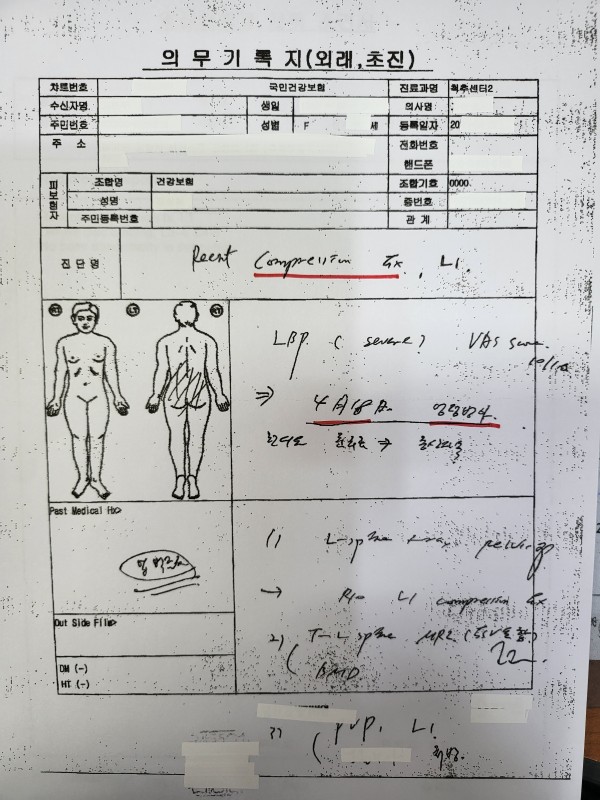 의 무 기 록 지(외래,초진)
챠트번호 국민건강보험 진료과명 척추센터2
수신자명 생일 의사명
주민번호 성별 F 세 등록일자 20
주 소 전화번호
핸드폰
피보험자 조합명 건강보험 조합기호 0000
성명 증번호
주민등록번호 관 계
진 단 명 Recent Compression fx, L1.
RT LT RT
LBP ( severe) VAS score
10/10
⇒ 4月18日. 엉덩방아
한의원 ⇒
Past Medical Hx>
1) L-spine x-ray
→ R/o L1 compression fx
Out Side Film>
2) T-L spine MRI
BMD
DM (-)
HT (-)
3) PVP, L1.